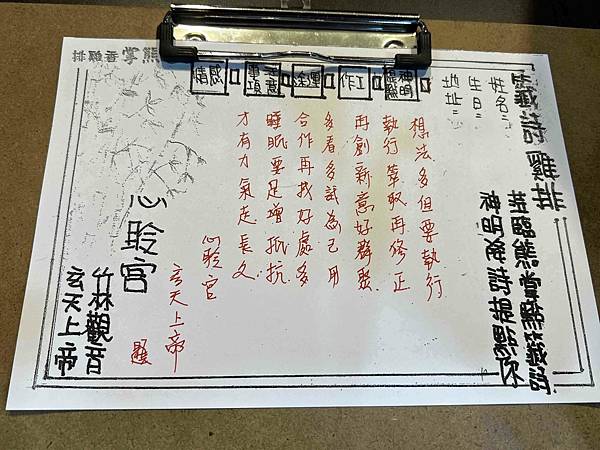 籤詩雞排
排隊熊掌點籤詩
神明給詩提點你
姓名:
生日:
地址:
神明提點
工作
注意事項
感情
想法多但要執行
執行萃取再修正
再創新意好群聚
多看多試為己用
合作再找好處多
睡眠要足增抵抗
才有力氣走長久
心聆宮
玄天上帝
心聆宮
竹林觀音
玄天上帝